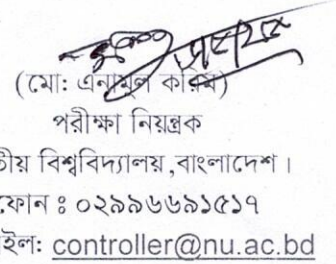 (মো: এনামুল করিম)
পরীক্ষা নিয়ন্ত্রক
তীয় বিশ্ববিদ্যালয়,বাংলাদেশ।
ফোন ঃ ০২৯৯৬৬৯১৫১৭
ইল: controller@nu.ac.bd